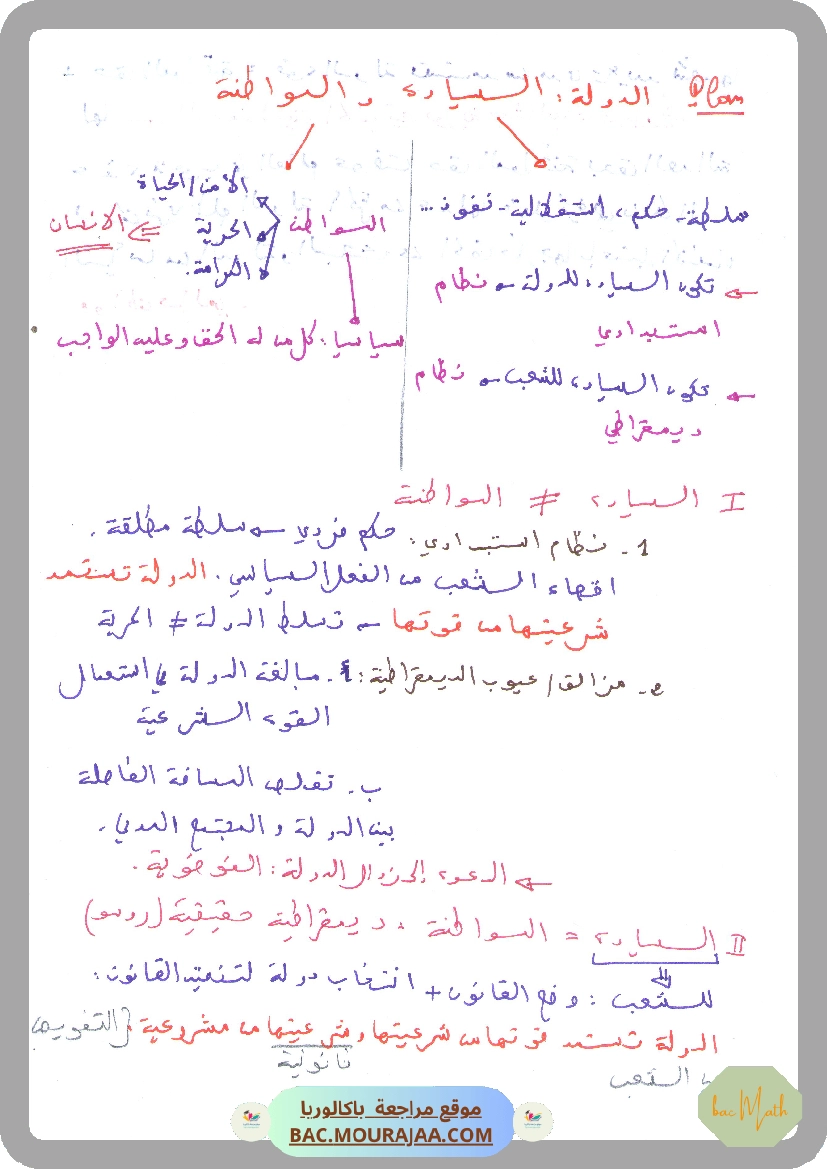 Plan الدولة: السيادة والمواطنة
سلطة - حكم، استقلالية - نفوذ...
← تكون السيادة للدولة ← نظام
استبدادي
← تكون السيادة للشعب ← نظام
ديمقراطي
الأمن/الحياة
المواطنة الحرية ⇐ الإنسان
الكرامة.
سياسيا: كل من له الحق وعليه الواجب
I السيادة ≠ المواطنة
1- نظام استبدادي: حكم فردي ← سلطة مطلقة.
اقصاء الشعب من الفعل السياسي. الدولة تستمد
شرعيتها من قوتها ← تسلط الدولة ≠ الحرية
2- مزالق/عيوب الديمقراطية: أ- مبالغة الدولة في استعمال
القوة الشرعية
ب- تقلص المسافة الفاصلة
بين الدولة والمجتمع المدني.
← الدعوة إلى زوال الدولة: الفوضوية.
II السيادة = المواطنة: ديمقراطية حقيقية (روسو)
للشعب: وضع القانون + انتخاب دولة لتنفيذ القانون:
الدولة تستمد قوتها من شرعيتها وشرعيتها من مشروعية {التفويض
قانونية
من الشعب
موقع مراجعة باكالوريا
BAC.MOURAJAA.COM
bac Math